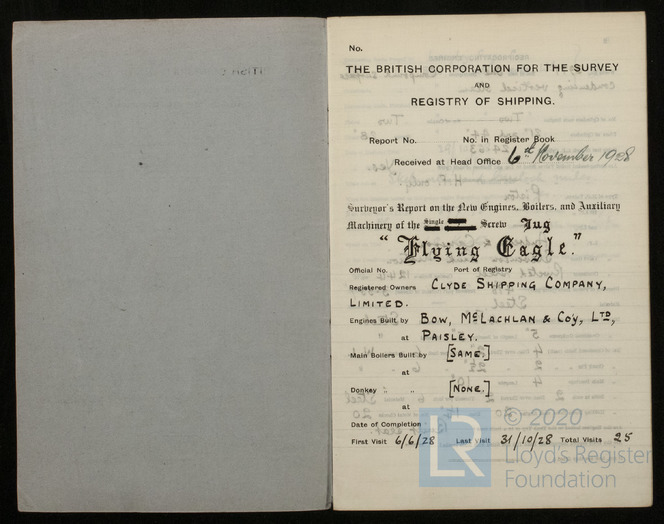 No.
THE BRITISH CORPORATION FOR THE SURVEY
AND
REGISTRY OF SHIPPING.
Report No. No. in Register Book
Received at Head Office 6th November 1928
Surveyor's Report on the New Engines, Boilers, and Auxiliary
Machinery of the Single Screw Tug
"Flying Eagle."
Official No. Port of Registry
Registered Owners CLYDE SHIPPING COMPANY,
LIMITED.
Engines Built by BOW, McLACHLAN & Coy, LTD,
at PAISLEY.
Main Boilers Built by [SAME.]
at
Donkey " " [NONE.]
at
Date of Completion
First Visit 6/6/28 Last Visit 31/10/28 Total Visits 25
© 2020
LR Lloyd's Register
Foundation